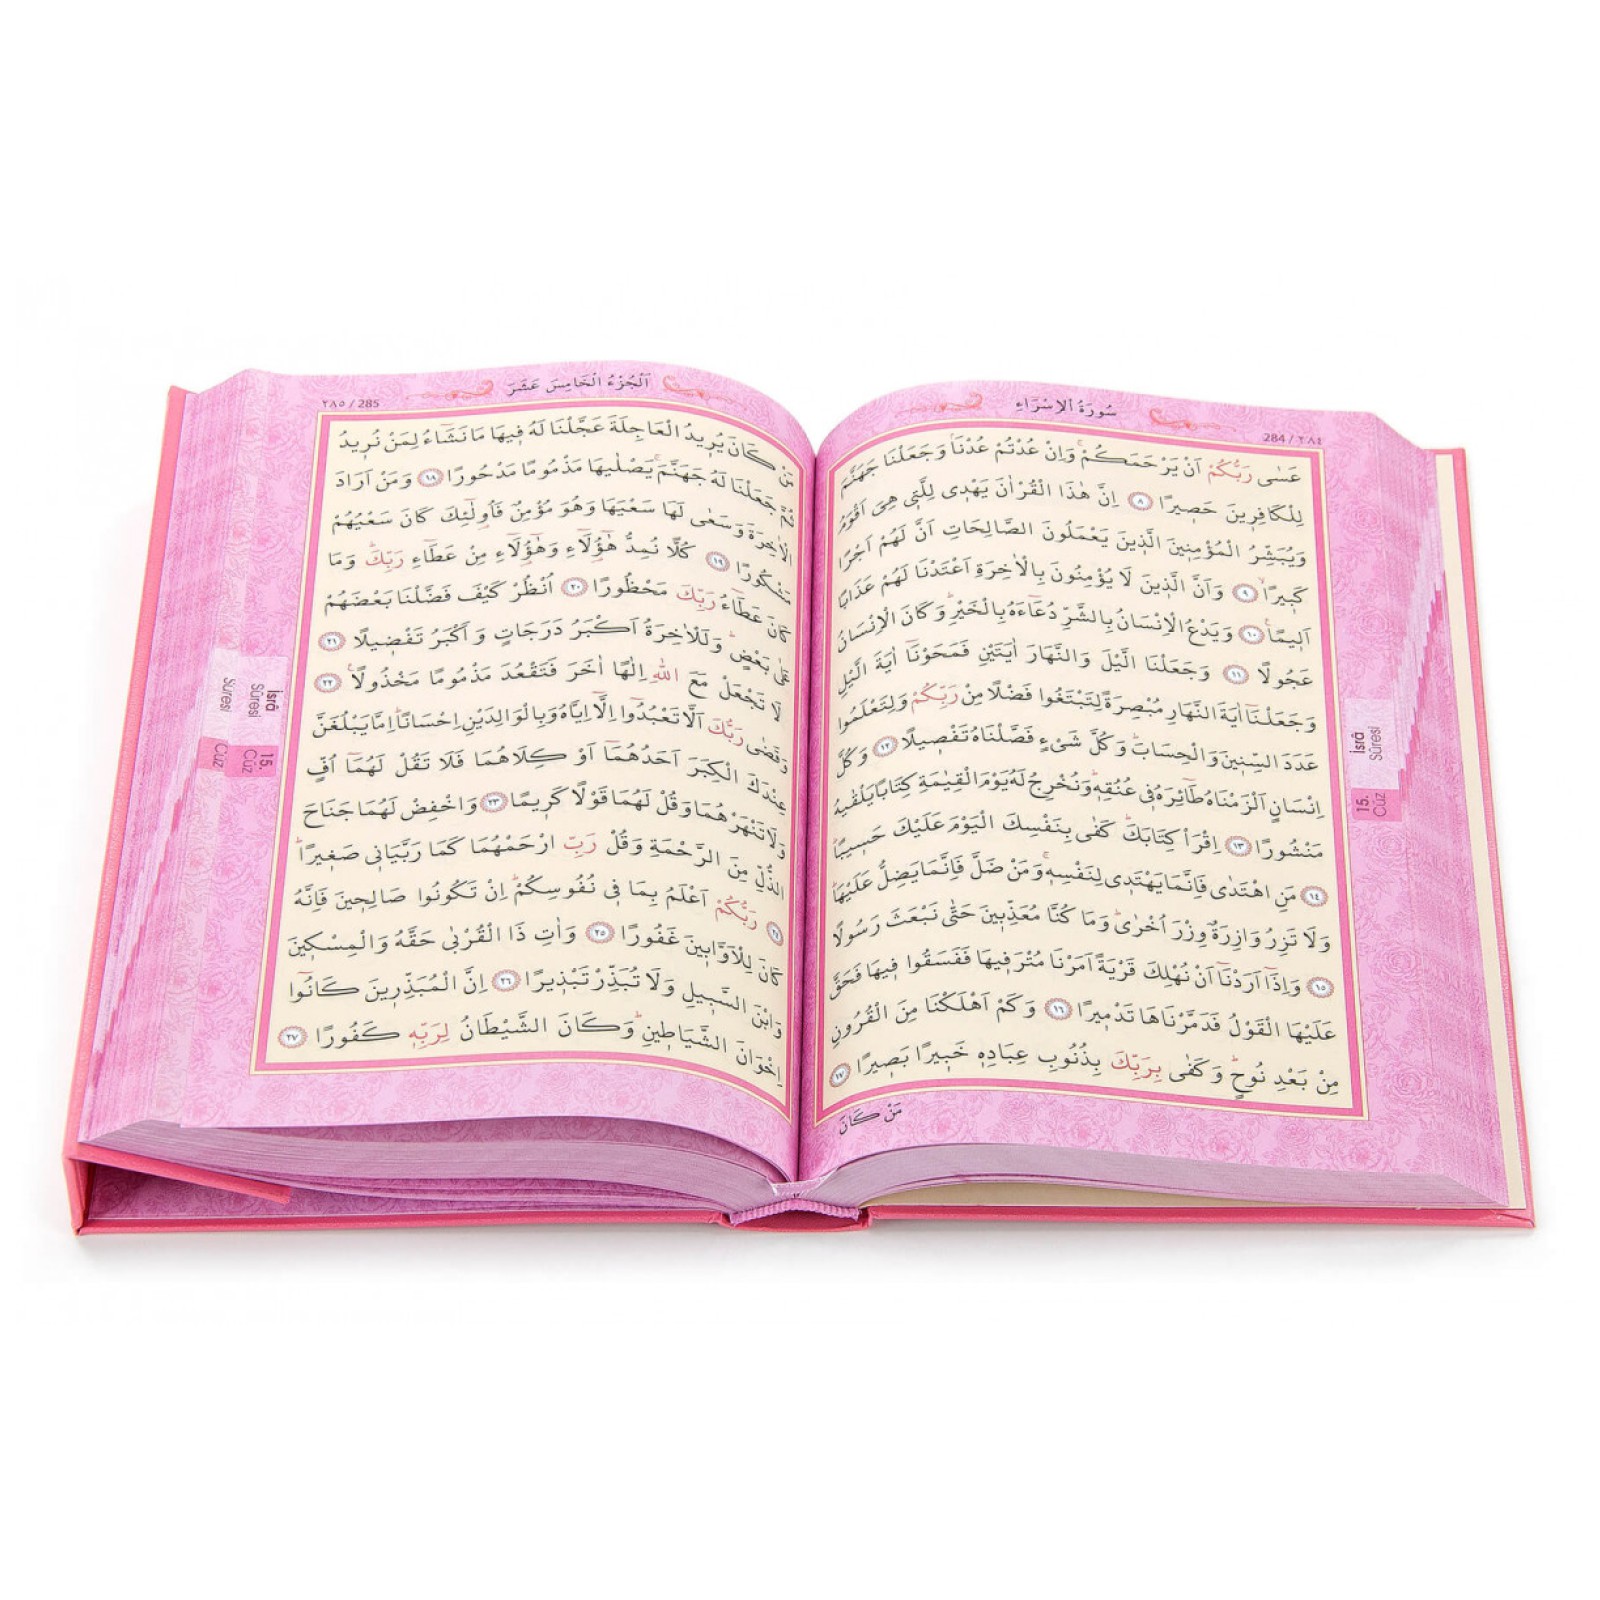 سُورَةُ الْاِسْرَاءِ
284 / ٢٨٤
عَسٰى رَبُّكُمْ اَنْ يَرْحَمَكُمْۚ وَاِنْ عُدْتُمْ عُدْنَاۢ وَجَعَلْنَا جَهَنَّمَ
لِلْكَافِر۪ينَ حَص۪يرًا ﴿٨﴾ اِنَّ هٰذَا الْقُرْاٰنَ يَهْد۪ي لِلَّت۪ي هِيَ اَقْوَمُ
وَيُبَشِّرُ الْمُؤْمِن۪ينَ الَّذ۪ينَ يَعْمَلُونَ الصَّالِحَاتِ اَنَّ لَهُمْ اَجْرًا
كَب۪يرًاۙ ﴿٩﴾ وَاَنَّ الَّذ۪ينَ لَا يُؤْمِنُونَ بِالْاٰخِرَةِ اَعْتَدْنَا لَهُمْ عَذَابًا
اَل۪يمًا۟ ﴿١٠﴾ وَيَدْعُ الْاِنْسَانُ بِالشَّرِّ دُعَٓاءَهُ بِالْخَيْرِۜ وَكَانَ الْاِنْسَانُ
عَجُولًا ﴿١١﴾ وَجَعَلْنَا الَّيْلَ وَالنَّهَارَ اٰيَتَيْنِ فَمَحَوْنَٓا اٰيَةَ الَّيْلِ
وَجَعَلْنَٓا اٰيَةَ النَّهَارِ مُبْصِرَةً لِتَبْتَغُوا فَضْلًا مِنْ رَبِّكُمْ وَلِتَعْلَمُوا
عَدَدَ السِّن۪ينَ وَالْحِسَابَۜ وَكُلَّ شَيْءٍ فَصَّلْنَاهُ تَفْص۪يلًا ﴿١٢﴾ وَكُلَّ
اِنْسَانٍ اَلْزَمْنَاهُ طَٓائِرَهُ ف۪ي عُنُقِه۪ۜ وَنُخْرِجُ لَهُ يَوْمَ الْقِيٰمَةِ كِتَابًا يَلْقٰيهُ
مَنْشُورًا ﴿١٣﴾ اِقْرَأْ كِتَابَكَۜ كَفٰى بِنَفْسِكَ الْيَوْمَ عَلَيْكَ حَس۪يبًاۜ
﴿١٤﴾ مَنِ اهْتَدٰى فَاِنَّمَا يَهْتَد۪ي لِنَفْسِه۪ۚ وَمَنْ ضَلَّ فَاِنَّمَا يَضِلُّ عَلَيْهَاۜ
وَلَا تَزِرُ وَازِرَةٌ وِزْرَ اُخْرٰىۜ وَمَا كُنَّا مُعَذِّب۪ينَ حَتّٰى نَبْعَثَ رَسُولًا
﴿١٥﴾ وَاِذَٓا اَرَدْنَٓا اَنْ نُهْلِكَ قَرْيَةً اَمَرْنَا مُتْرَف۪يهَا فَفَسَقُوا ف۪يهَا فَحَقَّ
عَلَيْهَا الْقَوْلُ فَدَمَّرْنَاهَا تَدْم۪يرًا ﴿١٦﴾ وَكَمْ اَهْلَكْنَا مِنَ الْقُرُونِ
مِنْ بَعْدِ نُوحٍۜ وَكَفٰى بِرَبِّكَ بِذُنُوبِ عِبَادِه۪ خَب۪يرًا بَص۪يرًا ﴿١٧﴾
مَنْ كَانَ
İsrâ
Sûresi
15.
Cüz
اَلْجُزْءُ الْخَامِسَ عَشَرَ
٢٨٥ / 285
مَنْ كَانَ يُر۪يدُ الْعَاجِلَةَ عَجَّلْنَا لَهُ ف۪يهَا مَا نَشَٓاءُ لِمَنْ نُر۪يدُ
ثُمَّ جَعَلْنَا لَهُ جَهَنَّمَۚ يَصْلٰيهَا مَذْمُومًا مَدْحُورًا ﴿١٨﴾ وَمَنْ اَرَادَ
الْاٰخِرَةَ وَسَعٰى لَهَا سَعْيَهَا وَهُوَ مُؤْمِنٌ فَاُو۬لٰٓئِكَ كَانَ سَعْيُهُمْ
مَشْكُورًا ﴿١٩﴾ كُلًّا نُمِدُّ هٰٓؤُ۬لَٓاءِ وَهٰٓؤُ۬لَٓاءِ مِنْ عَطَٓاءِ رَبِّكَۜ وَمَا
كَانَ عَطَٓاءُ رَبِّكَ مَحْظُورًا ﴿٢٠﴾ اُنْظُرْ كَيْفَ فَضَّلْنَا بَعْضَهُمْ
عَلٰى بَعْضٍۜ وَلَلْاٰخِرَةُ اَكْبَرُ دَرَجَاتٍ وَاَكْبَرُ تَفْض۪يلًا ﴿٢١﴾
لَا تَجْعَلْ مَعَ اللّٰهِ اِلٰهًا اٰخَرَ فَتَقْعُدَ مَذْمُومًا مَخْذُولًا۟ ﴿٢٢﴾
وَقَضٰى رَبُّكَ اَلَّا تَعْبُدُٓوا اِلَّٓا اِيَّاهُ وَبِالْوَالِدَيْنِ اِحْسَانًاۜ اِمَّا يَبْلُغَنَّ
عِنْدَكَ الْكِبَرَ اَحَدُهُمَٓا اَوْ كِلَاهُمَا فَلَا تَقُلْ لَهُمَٓا اُفٍّ
وَلَا تَنْهَرْهُمَا وَقُلْ لَهُمَا قَوْلًا كَر۪يمًا ﴿٢٣﴾ وَاخْفِضْ لَهُمَا جَنَاحَ
الذُّلِّ مِنَ الرَّحْمَةِ وَقُلْ رَبِّ ارْحَمْهُمَا كَمَا رَبَّيَان۪ي صَغ۪يرًاۜ
﴿٢٤﴾ رَبُّكُمْ اَعْلَمُ بِمَا ف۪ي نُفُوسِكُمْۜ اِنْ تَكُونُوا صَالِح۪ينَ فَاِنَّهُ
كَانَ لِلْاَوَّاب۪ينَ غَفُورًا ﴿٢٥﴾ وَاٰتِ ذَا الْقُرْبٰى حَقَّهُ وَالْمِسْك۪ينَ
وَابْنَ السَّب۪يلِ وَلَا تُبَذِّرْ تَبْذ۪يرًا ﴿٢٦﴾ اِنَّ الْمُبَذِّر۪ينَ كَانُٓوا
اِخْوَانَ الشَّيَاط۪ينِۜ وَكَانَ الشَّيْطَانُ لِرَبِّه۪ كَفُورًا ﴿٢٧﴾
İsrâ
Sûresi
15.
Cüz
Sûresi
Cüz